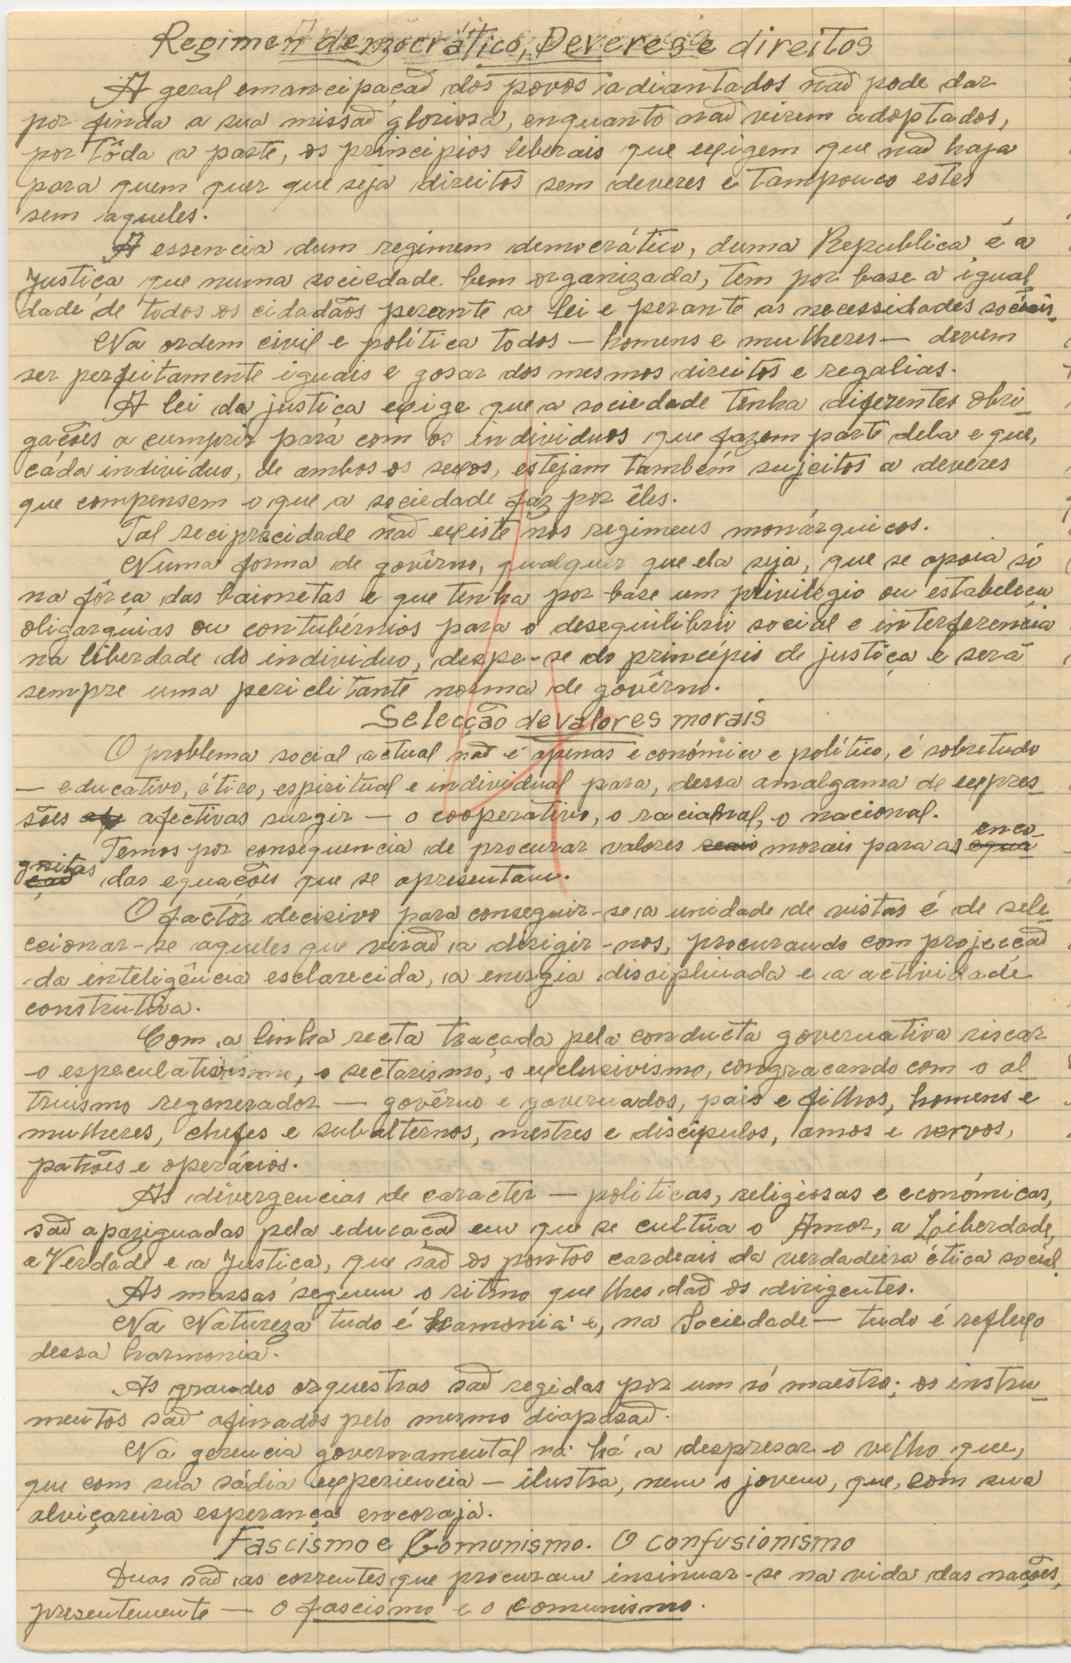 Regimen democrático, Deveres e direitos
A geral emancipação dos povos adiantados não pode dar
por finda a sua missão gloriosa, enquanto não virem adoptados,
por tôda a parte, os principios liberais que exigem que não haja
para quem quer que seja direitos sem deveres e tampouco estes
sem aqueles.
A essencia dum regimem democrático, duma Republica é a
Justiça que numa sociedade bem organizada, tem por base a igual
dade de todos os cidadãos perante a lei e perante as necessidades sociais.
Na ordem civil e política todos — homens e mulheres — devem
ser perfeitamente iguais e gosar dos mesmos direitos e regalias.
A lei da justiça exige que a sociedade tenha diferentes obri-
gações a cumprir para com os individuos que fazem parte dela e que,
cada individuo, de ambos os sexos, estejam também sujeitos a deveres
que compensem o que a sociedade faz por êles.
Tal reciprocidade não existe nos regimens monárquicos.
Numa forma de govêrno, qualquer que ela seja, que se apoia só
na fôrça das baionetas e que tenha por base um privilégio ou estabeleça
oligarquias ou contubérnios para o desequilibrio social e interferencia
na liberdade do individuo, despe-se do principio de justiça e será
sempre uma periclitante norma de govêrno.
Selecção de valores morais
O problema social actual não é apenas económico e político, é sobretudo
— educativo, ético, espiritual e individual para, dessa amalgama de expres-
sões afectivas surgir — o cooperativo, o racional, o nacional.
Temos por consequencia de procurar valores morais para as incó-
gnitas das equações que se apresentam.
O factor decisivo para conseguir-se a unidade de vistas é de sele-
ccionar-se aqueles que virão a dirigir-nos, procurando com projecção
da inteligência esclarecida, a energia disciplinada e a actividade
construtiva.
Com a linha recta traçada pela conducta governativa riscar
o especulativismo, o sectarismo, o exclusivismo, congraçando com o al
truismo regenerador — govêrno e governados, pais e filhos, homens e
mulheres, chefes e subalternos, mestres e discipulos, amos e servos,
patrões e operários.
As divergencias de caracter — politicas, religiosas e económicas,
são apaziguadas pela educação em que se cultiva o Amor, a Liberdade,
a Verdade e a Justiça, que são os pontos cardeais da verdadeira ética social.
As massas seguem o ritmo que lhes dão os dirigentes.
Na Natureza tudo é harmonia e, na Sociedade — tudo é reflexo
dessa harmonia.
As grandes orquestras são regidas por um só maestro; os instru-
mentos são afinados pelo mesmo diapasão.
Na gerencia governamental há a despresar o velho que,
que com sua sádia experiencia — ilustra, nem o jovem, que, com sua
alviçareira esperança encoraja.
Fascismo e Comunismo. O confusionismo
Duas são as correntes que procuram insinuar-se na vida das nações,
presentemente — o fascismo e o comunismo.